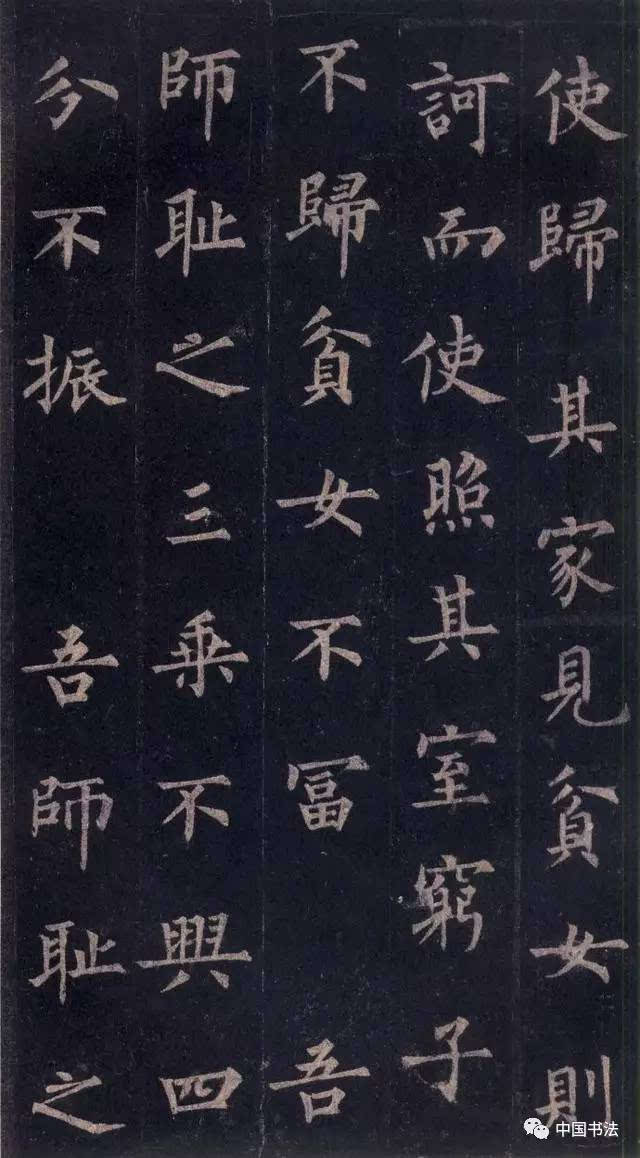 使歸其家見貧女則
訶而使照其室窮子
不歸貧女不冨吾
師耻之三乗不興四
分不振吾師耻之
中国书法